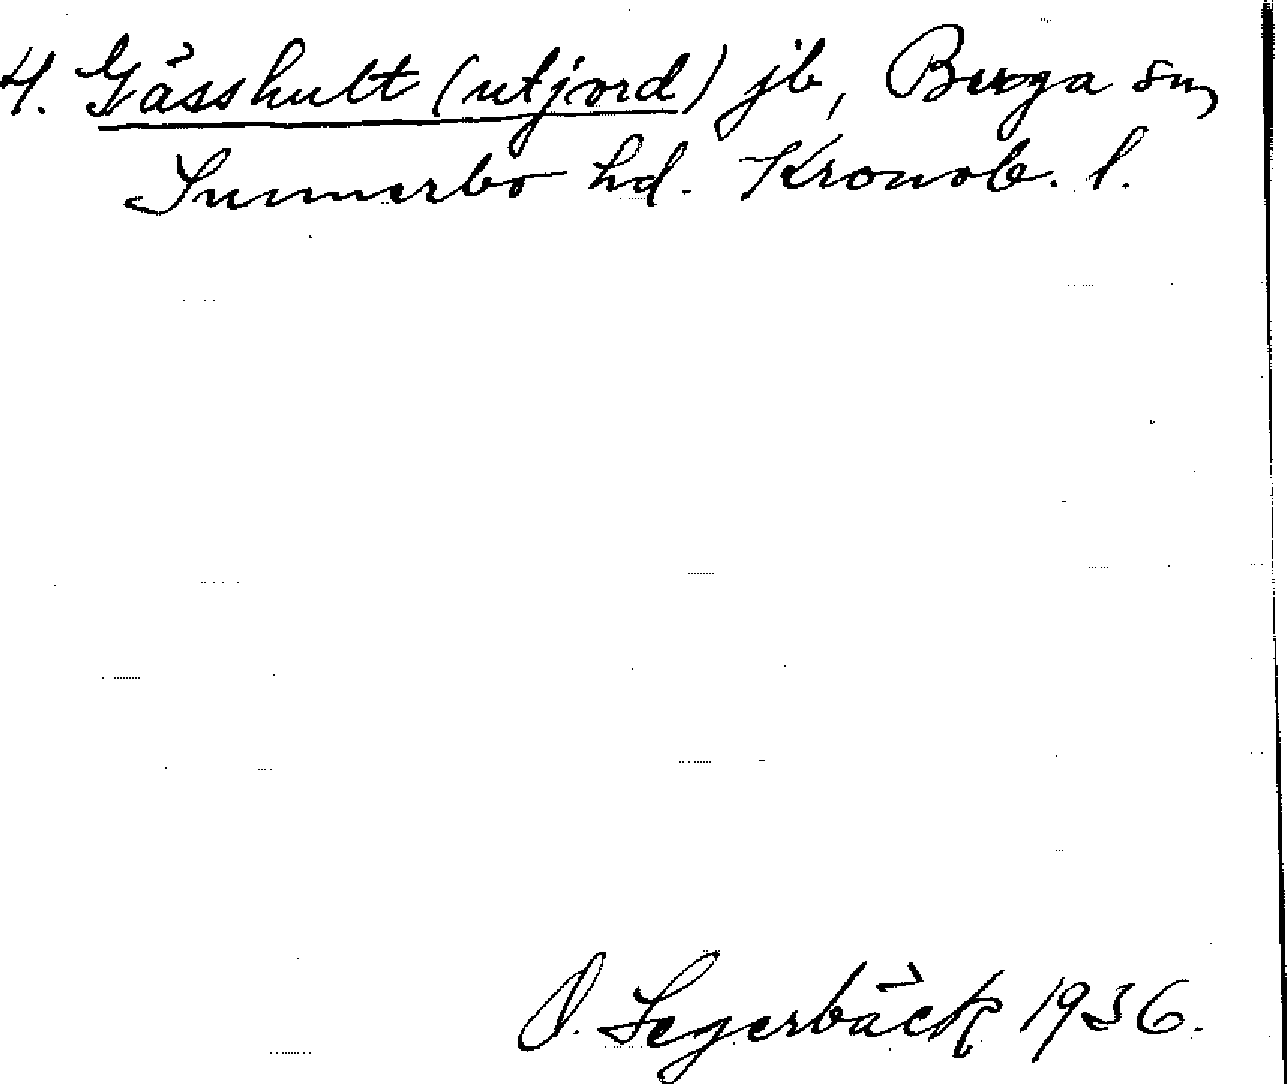 4. Gässhult (utjord) jb, Berga sn,
Sunnerbo hd. Kronob. l.
O. Segerbäck 1936.